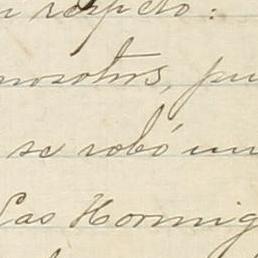 n respeto:
nosotros, pu
se robó un
Las Hormig